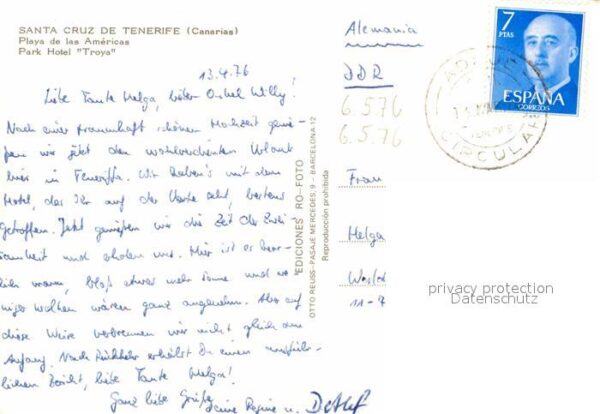 SANTA CRUZ DE TENERIFE (Canarias)
Playa de las Américas
Park Hotel "Troya"
13.4.76
Liebe Tante Helga, lieber Onkel Willy!
Nach einer traumhaft schönen Hochzeit genie-
ßen wir jetzt den wohlverdienten Urlaub
hier in Teneriffa. Wir haben's mit dem
Hotel, das Ihr auf der Karte seht, bestens
getroffen. Jetzt genießen wir die Zeit der Zwei-
samkeit und erholen uns. Hier ist es herr-
lich warm, bloß etwas mehr Sonne und we-
niger Wolken wären ganz angenehm. Aber auf
diese Weise verbrennen wir nicht gleich am
Anfang. Nach Rückkehr erhältst Du einen ausführ-
lichen Bericht, liebe Tante Helga!
Ganz liebe Grüße
Deine Regine u. Detlef
EDICIONES RO-FOTO
OTTO REUSS-PASAJE MERCEDES, 9 - BARCELONA-12
Reproducción prohibida
Alemania
DDR
6.5.76
6.5.76
Frau
Helga
11-7
7
PTAS
ESPAÑA
CORREOS
CIRCULAR
privacy protection
Datenschutz